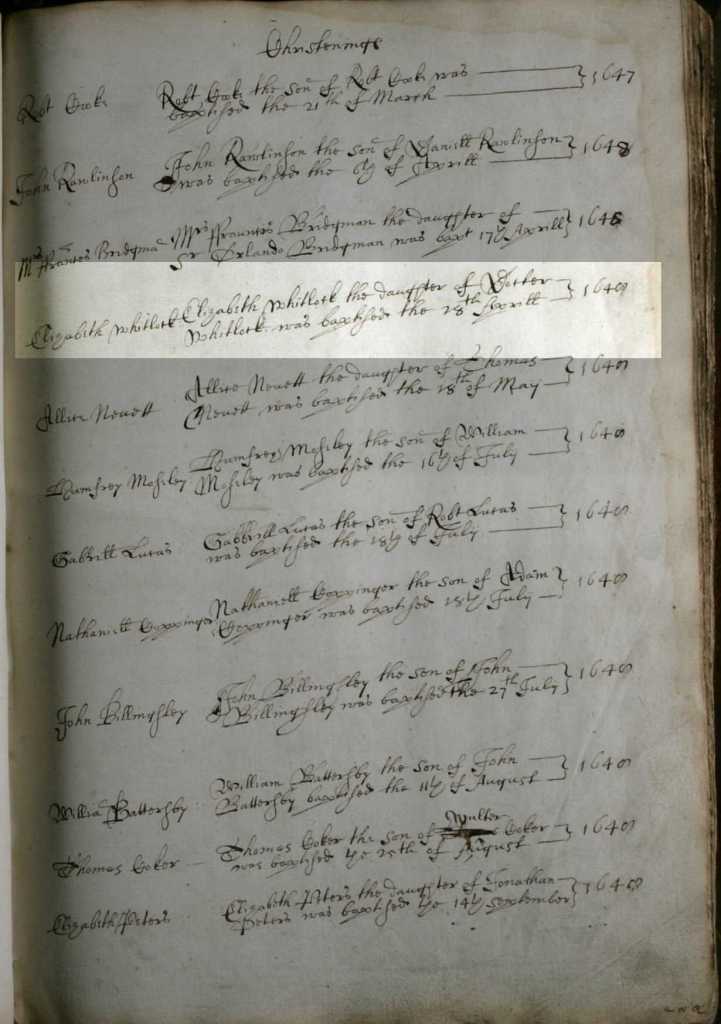 Christenings
Robt Cooke Robt Cooke the son of Robt Cooke was 1647
baptised the 21th of March
John Rawlinson John Rawlinson the son of Daniell Rawlinson 1648
was baptised the of Aprill
Mrs ffrances Bridgma Mrs ffraunces Bridgman the daughter of 1648
Sr Orlando Bridgman was bapt 17th Aprill
Elizabeth Whitlock Elizabeth Whitlock the daughter of 1648
Whitlock was baptised the 28th Aprill
Allice Nevett Allice Nevett the daughter of Thomas 1648
Nevett was baptised the 18th of May
Humfrey Mosiley Humfrey Mosiley the son of William 1648
Mosiley was baptised the 16th of July
Gabrill Lucas Gabbrill Lucas the son of Robt Lucas 1648
was baptised the 18th July
Nathaniell Coppinger Nathaniell Coppinger the son of Adam 1648
Coppinger was baptised 18th July
John Billingsley John Billingsley the son of John 1648
Billingsley was baptised the 27th July
Willia Battersby William Battersby the son of John 1648
Battersby baptised the 11th of August
Thomas Coker Thomas Coker the son of Coker 1648
was baptised ye 25th of August
Elizabeth Peters Elizabeth Peters the daughter of Jonathan 1648
Peters was baptised ye 14th September